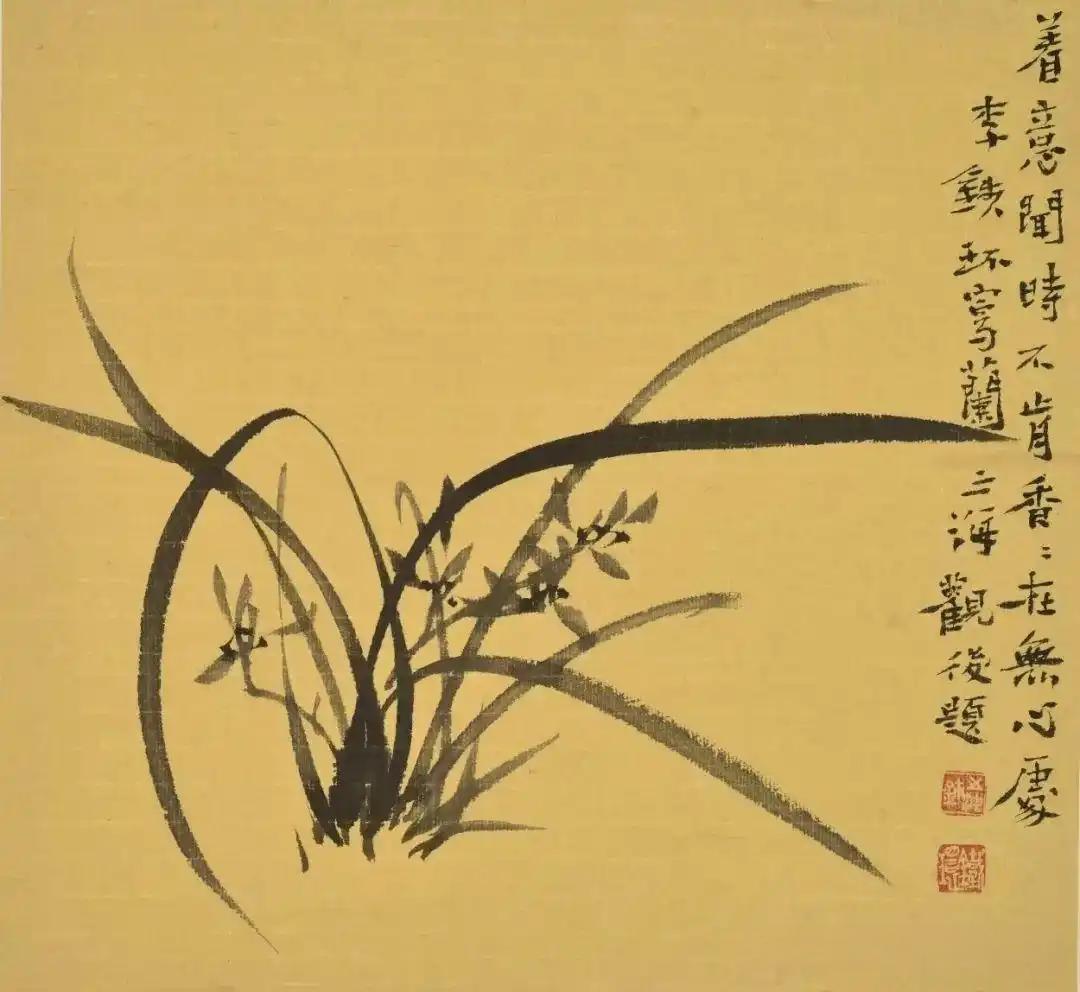 着意聞時不肯香〻在無心處
李鉄环寫蘭 海觀後題
鐵環